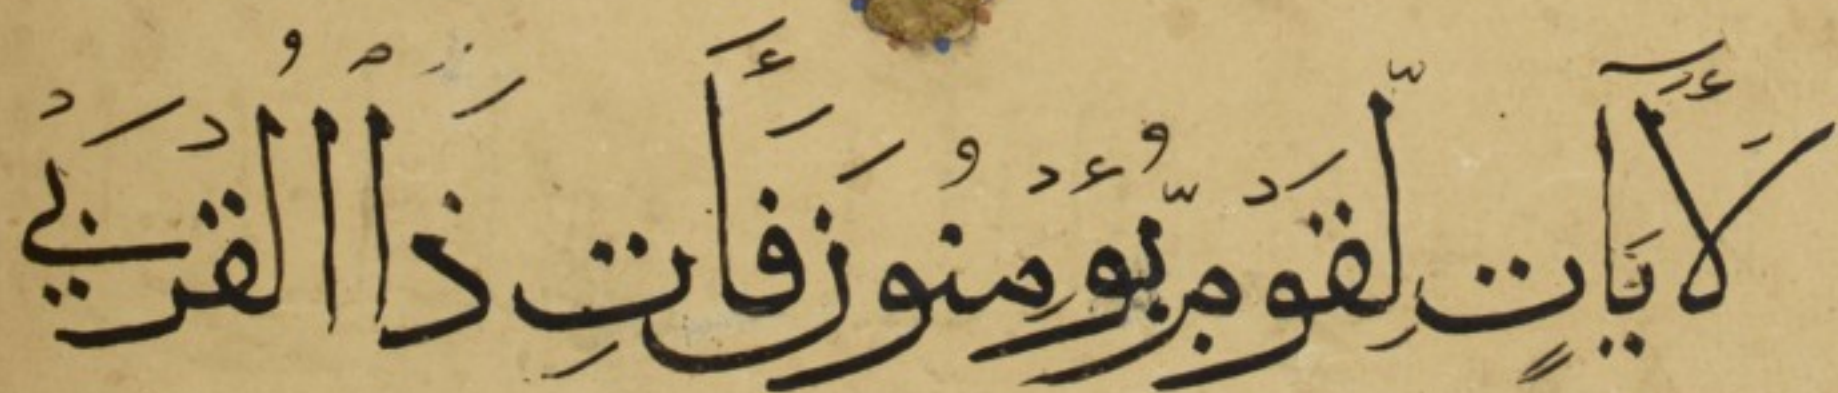 لَأٓيَاتٍ لِّقَوْمٍ يُّؤْمِنُونَ فَأٰتِ ذَا الْقُرْبٰي